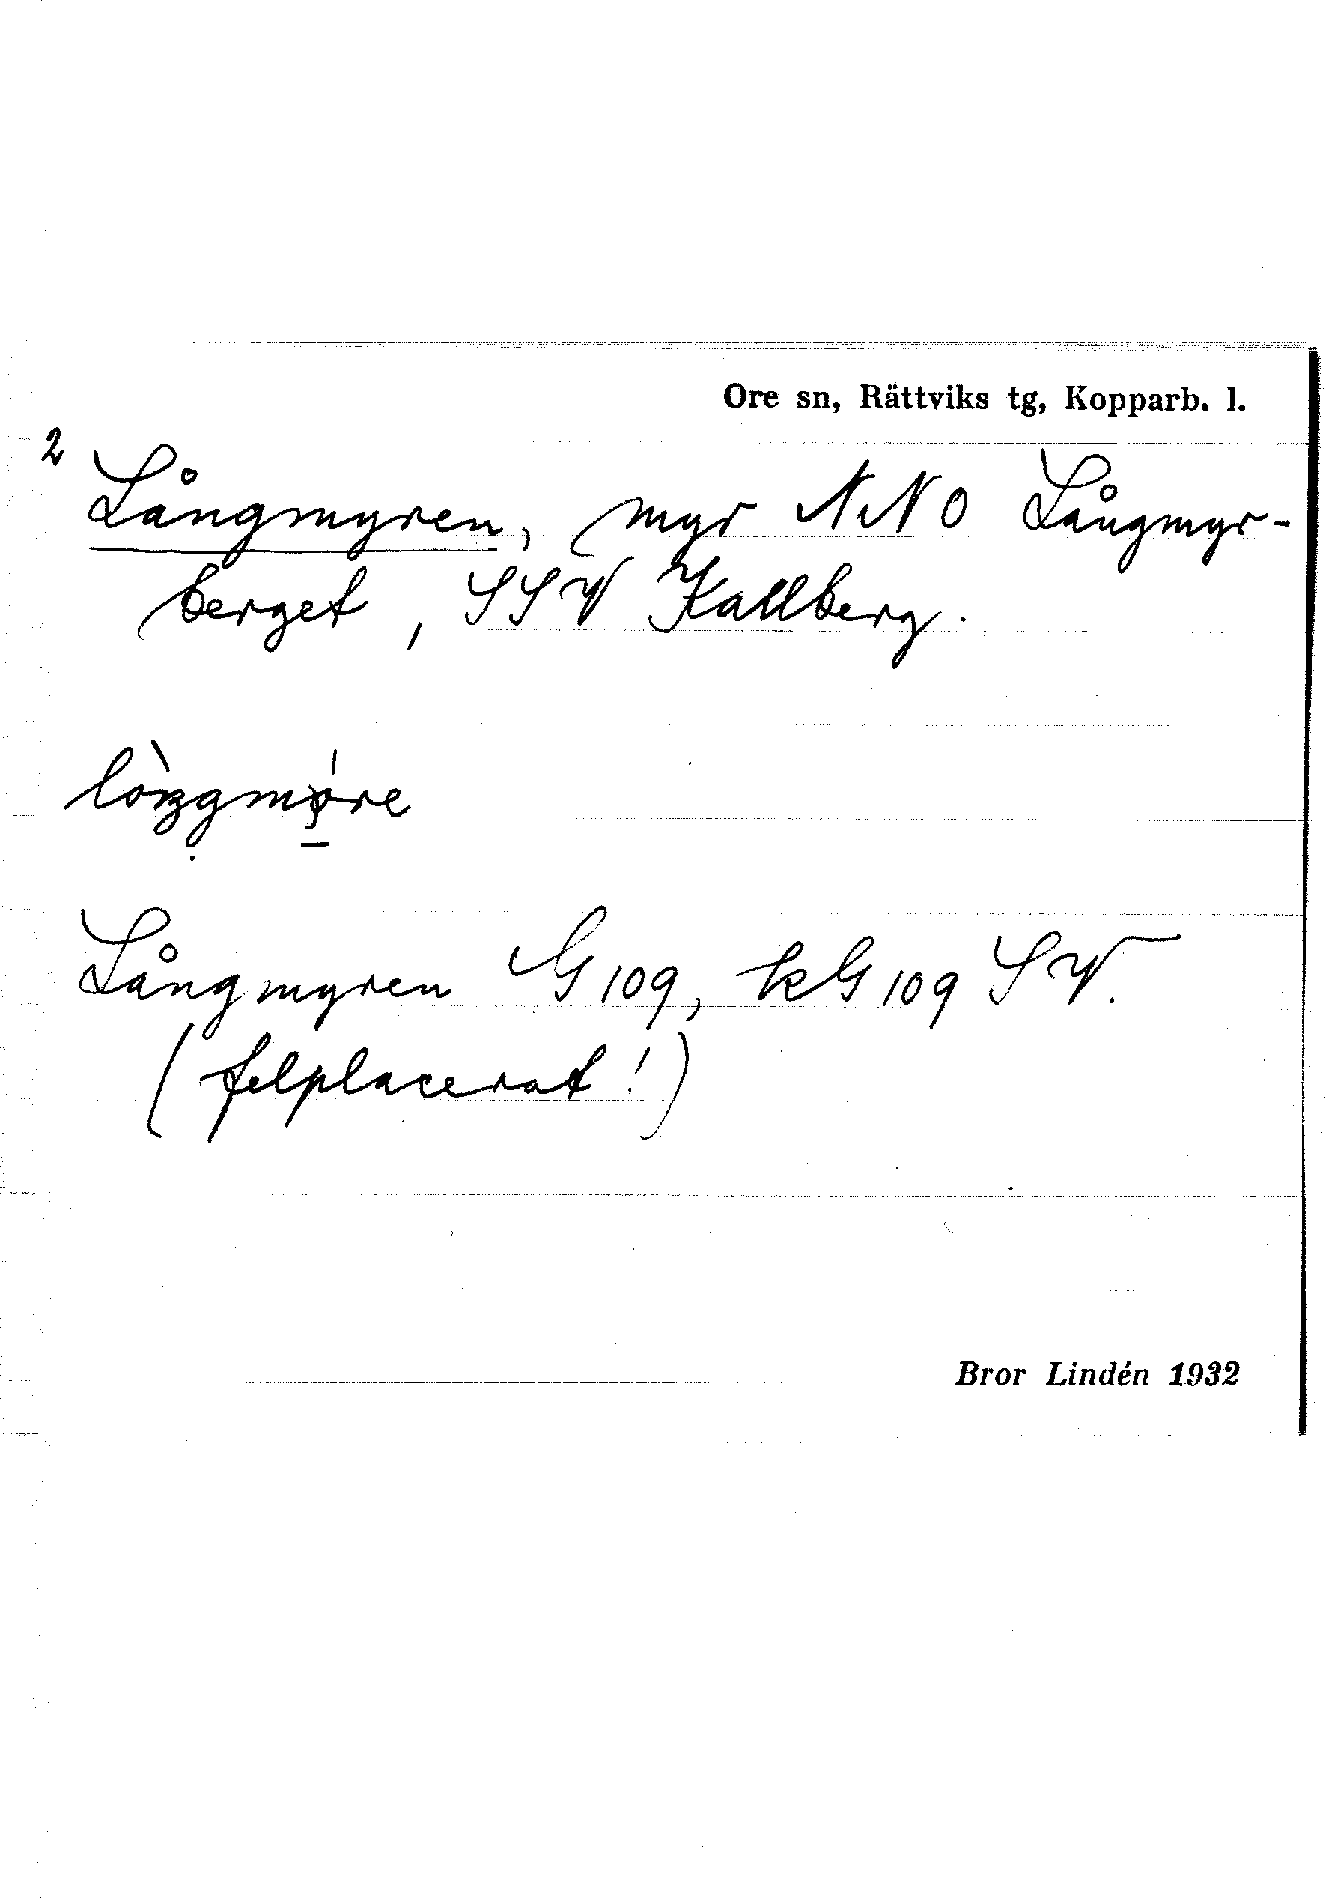 Ore sn, Rättviks tg, Kopparb. l.
2
Långmyren, myr NNO Långmyr-
berget, SSV Kallberg.
Långmyren G 109, kG 109 SV.
(felplacerat!)
Bror Lindén 1932